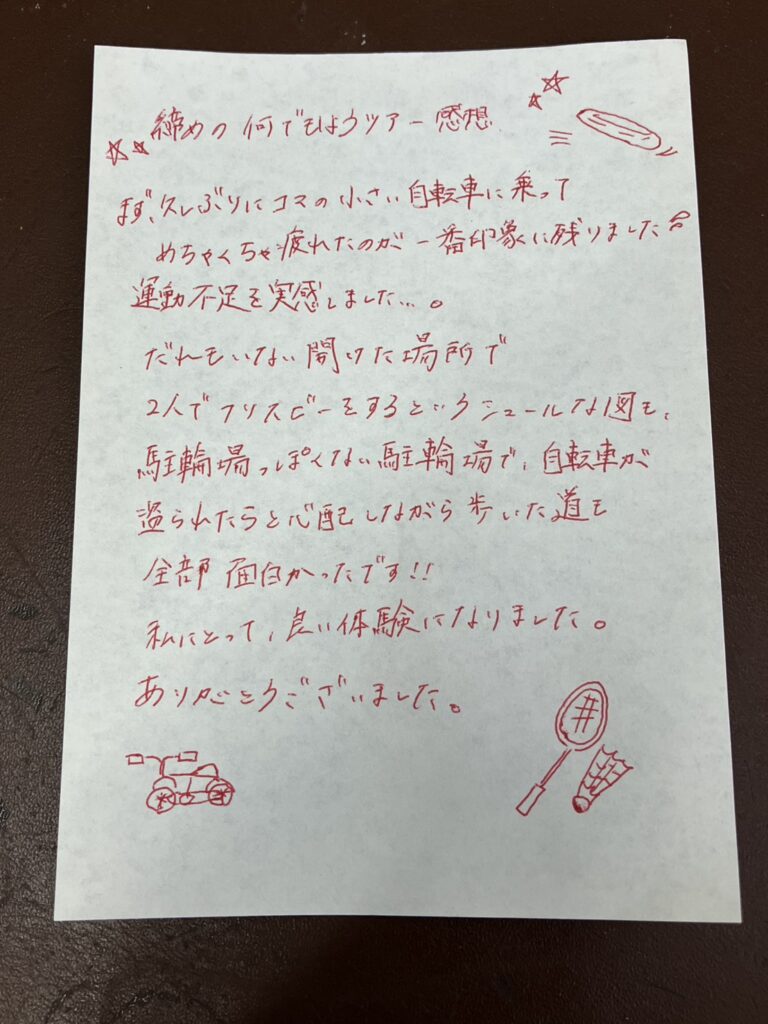 締めの何でもしようツアー感想
まず、久しぶりにコマの小さい自転車に乗って
めちゃくちゃ疲れたのが一番印象に残りました
運動不足を実感しました…。
だれもいない開けた場所で
2人でフリスビーをするというシュールな図も、
駐輪場っぽくない駐輪場で、自転車が
盗られたらと心配しながら歩いた道も
全部面白かったです!!
私にとって、良い体験になりました。
ありがとうございました。